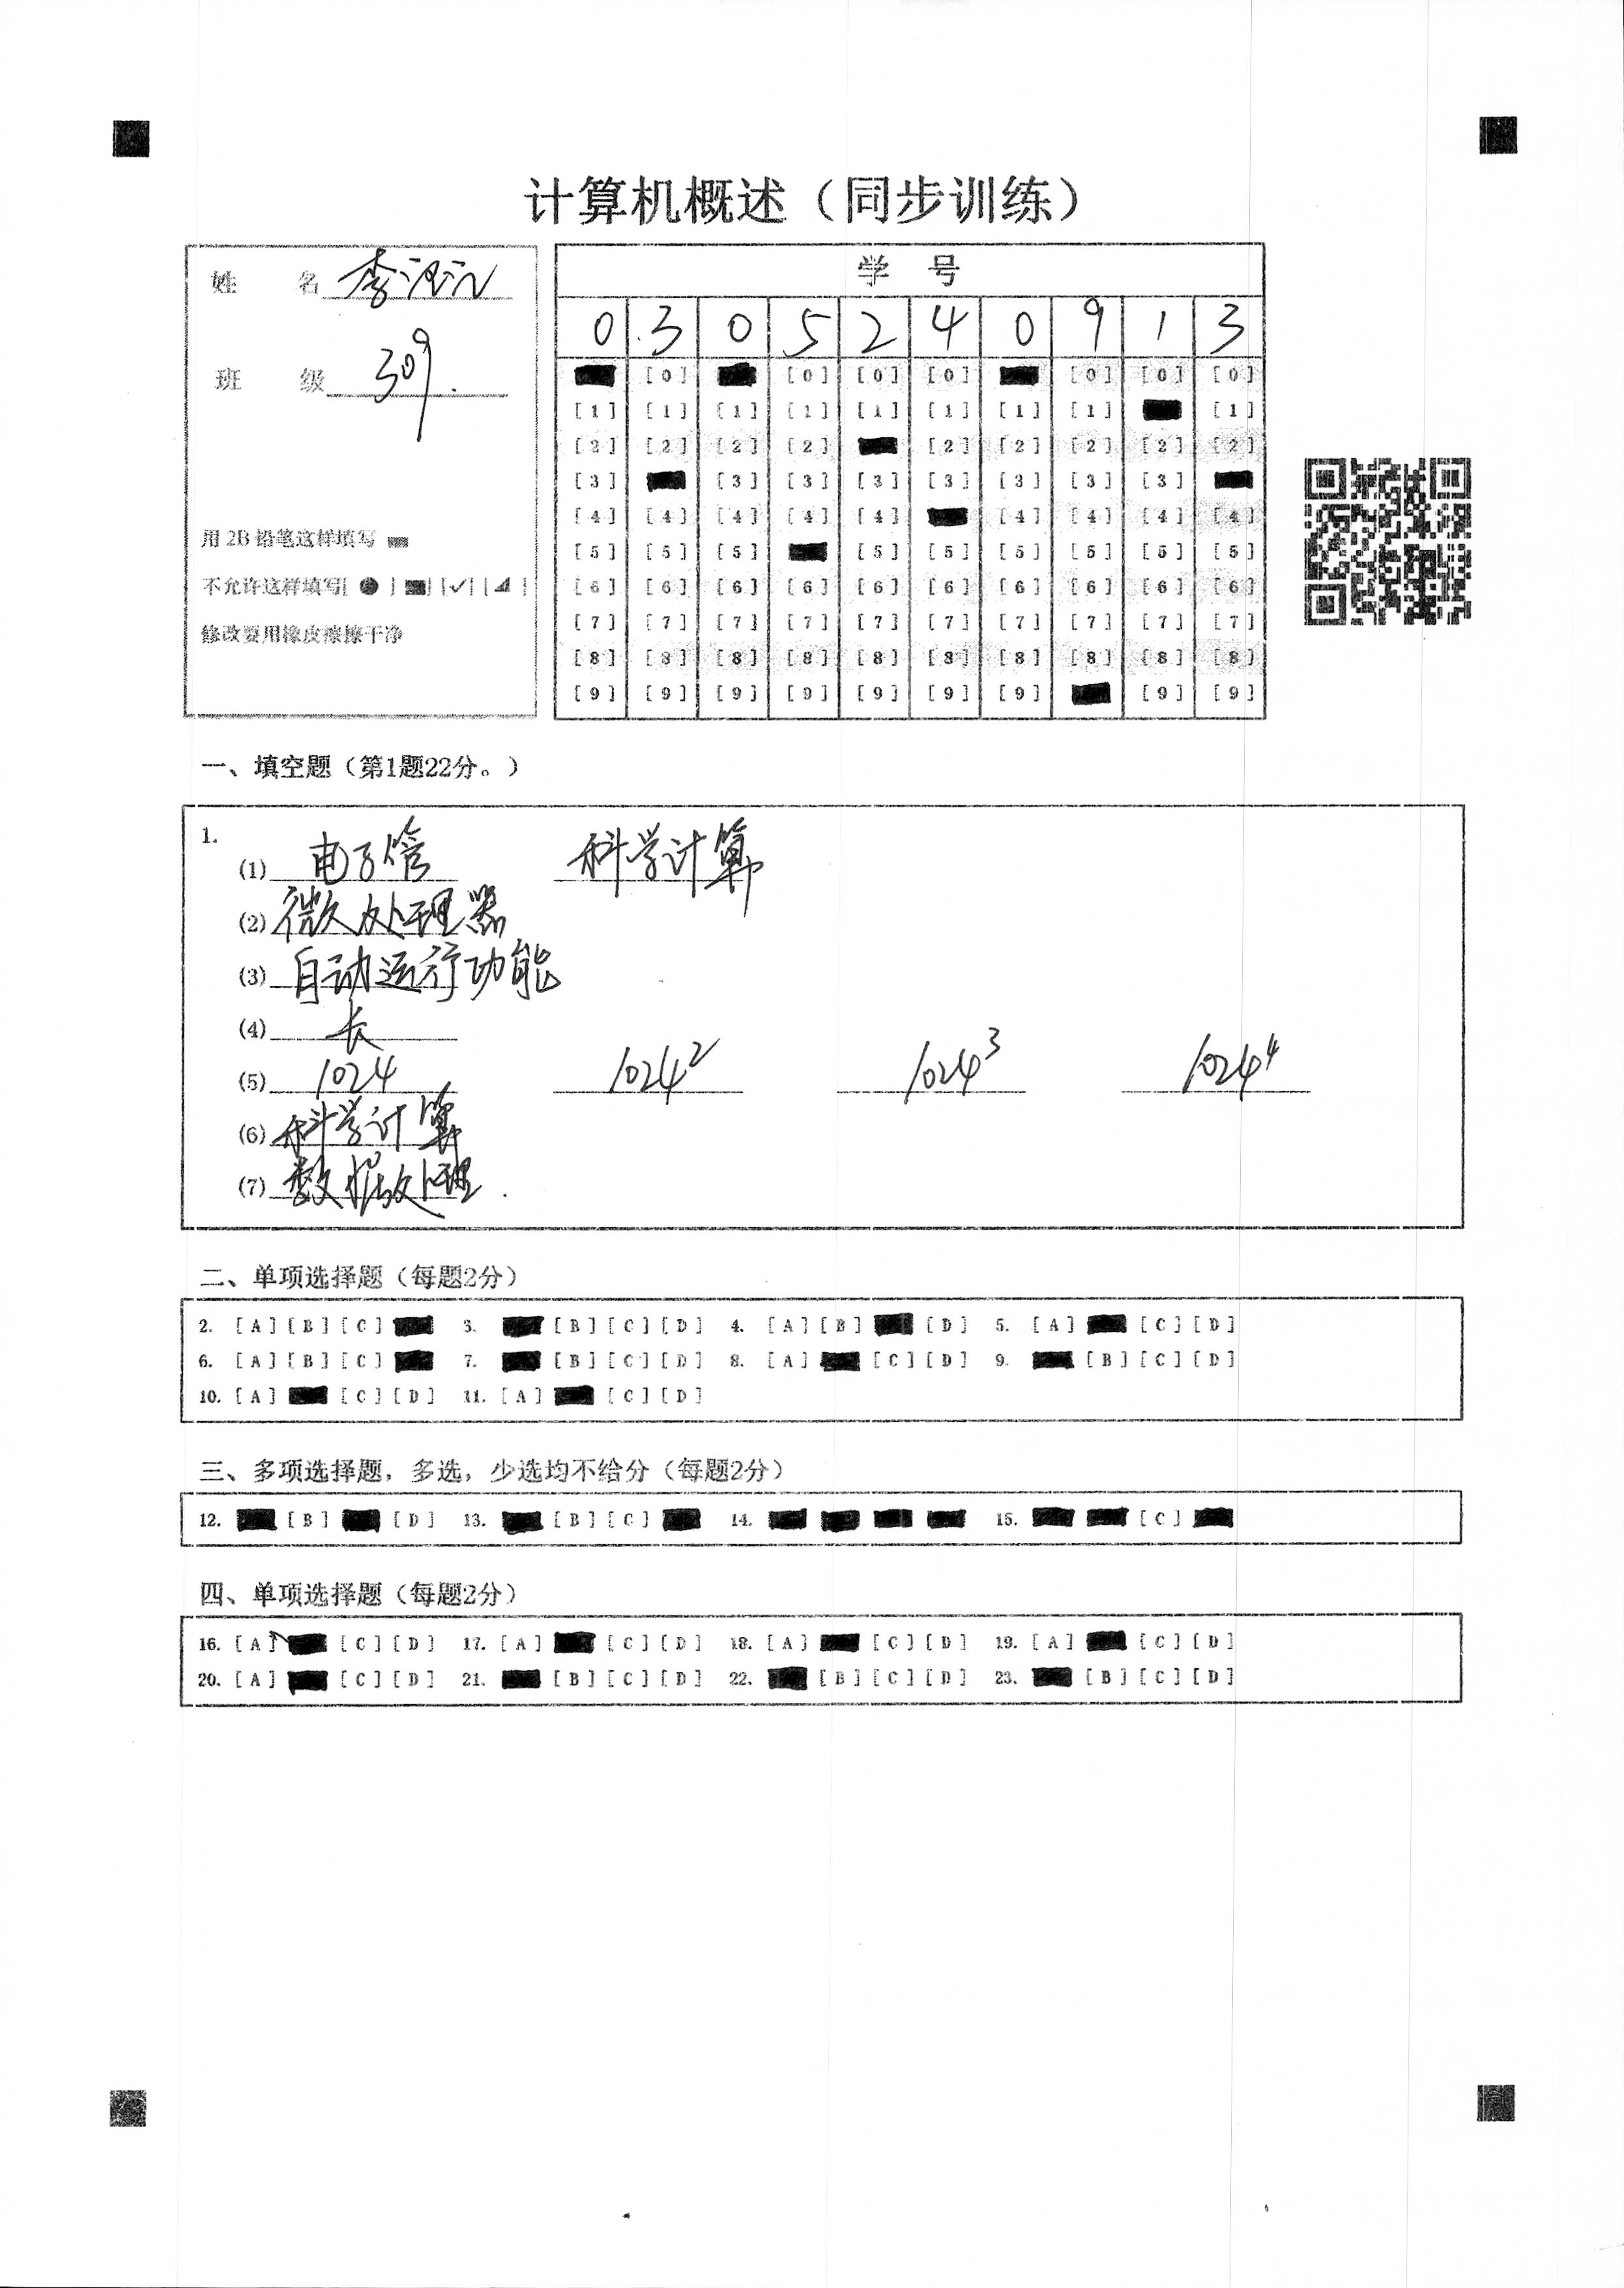 计算机概述（同步训练）
姓 名 李
班 级 309.
用 2B 铅笔这样填写
不允许这样填写[ ● ] [■] [✓] [◢ ]
修改要用橡皮擦擦干净
学 号
0 3 0 5 2 4 0 9 1 3
[0] [0] [0] [0] [0] [0] [0]
[1] [1] [1] [1] [1] [1] [1] [1] [1]
[2] [2] [2] [2] [2] [2] [2] [2] [2]
[3] [3] [3] [3] [3] [3] [3] [3]
[4] [4] [4] [4] [4] [4] [4] [4] [4]
[5] [5] [5] [5] [5] [5] [5] [5] [5]
[6] [6] [6] [6] [6] [6] [6] [6] [6] [6]
[7] [7] [7] [7] [7] [7] [7] [7] [7] [7]
[8] [8] [8] [8] [8] [8] [8] [8] [8] [8]
[9] [9] [9] [9] [9] [9] [9] [9] [9]
一、填空题（第1题22分。）
1.
(1) 电子管 科学计算
(2) 微处理器
(3) 自动运行功能
(4) 长
(5) 1024 1024² 1024³ 1024⁴
(6) 科学计算
(7) 数据处理.
二、单项选择题（每题2分）
2. [A] [B] [C] 3. [B] [C] [D] 4. [A] [B] [D] 5. [A] [C] [D]
6. [A] [B] [C] 7. [B] [C] [D] 8. [A] [C] [D] 9. [B] [C] [D]
10. [A] [C] [D] 11. [A] [C] [D]
三、多项选择题，多选，少选均不给分（每题2分）
12. [B] [D] 13. [B] [C] 14. 15. [C]
四、单项选择题（每题2分）
16. [A] [C] [D] 17. [A] [C] [D] 18. [A] [C] [D] 19. [A] [C] [D]
20. [A] [C] [D] 21. [B] [C] [D] 22. [B] [C] [D] 23. [B] [C] [D]